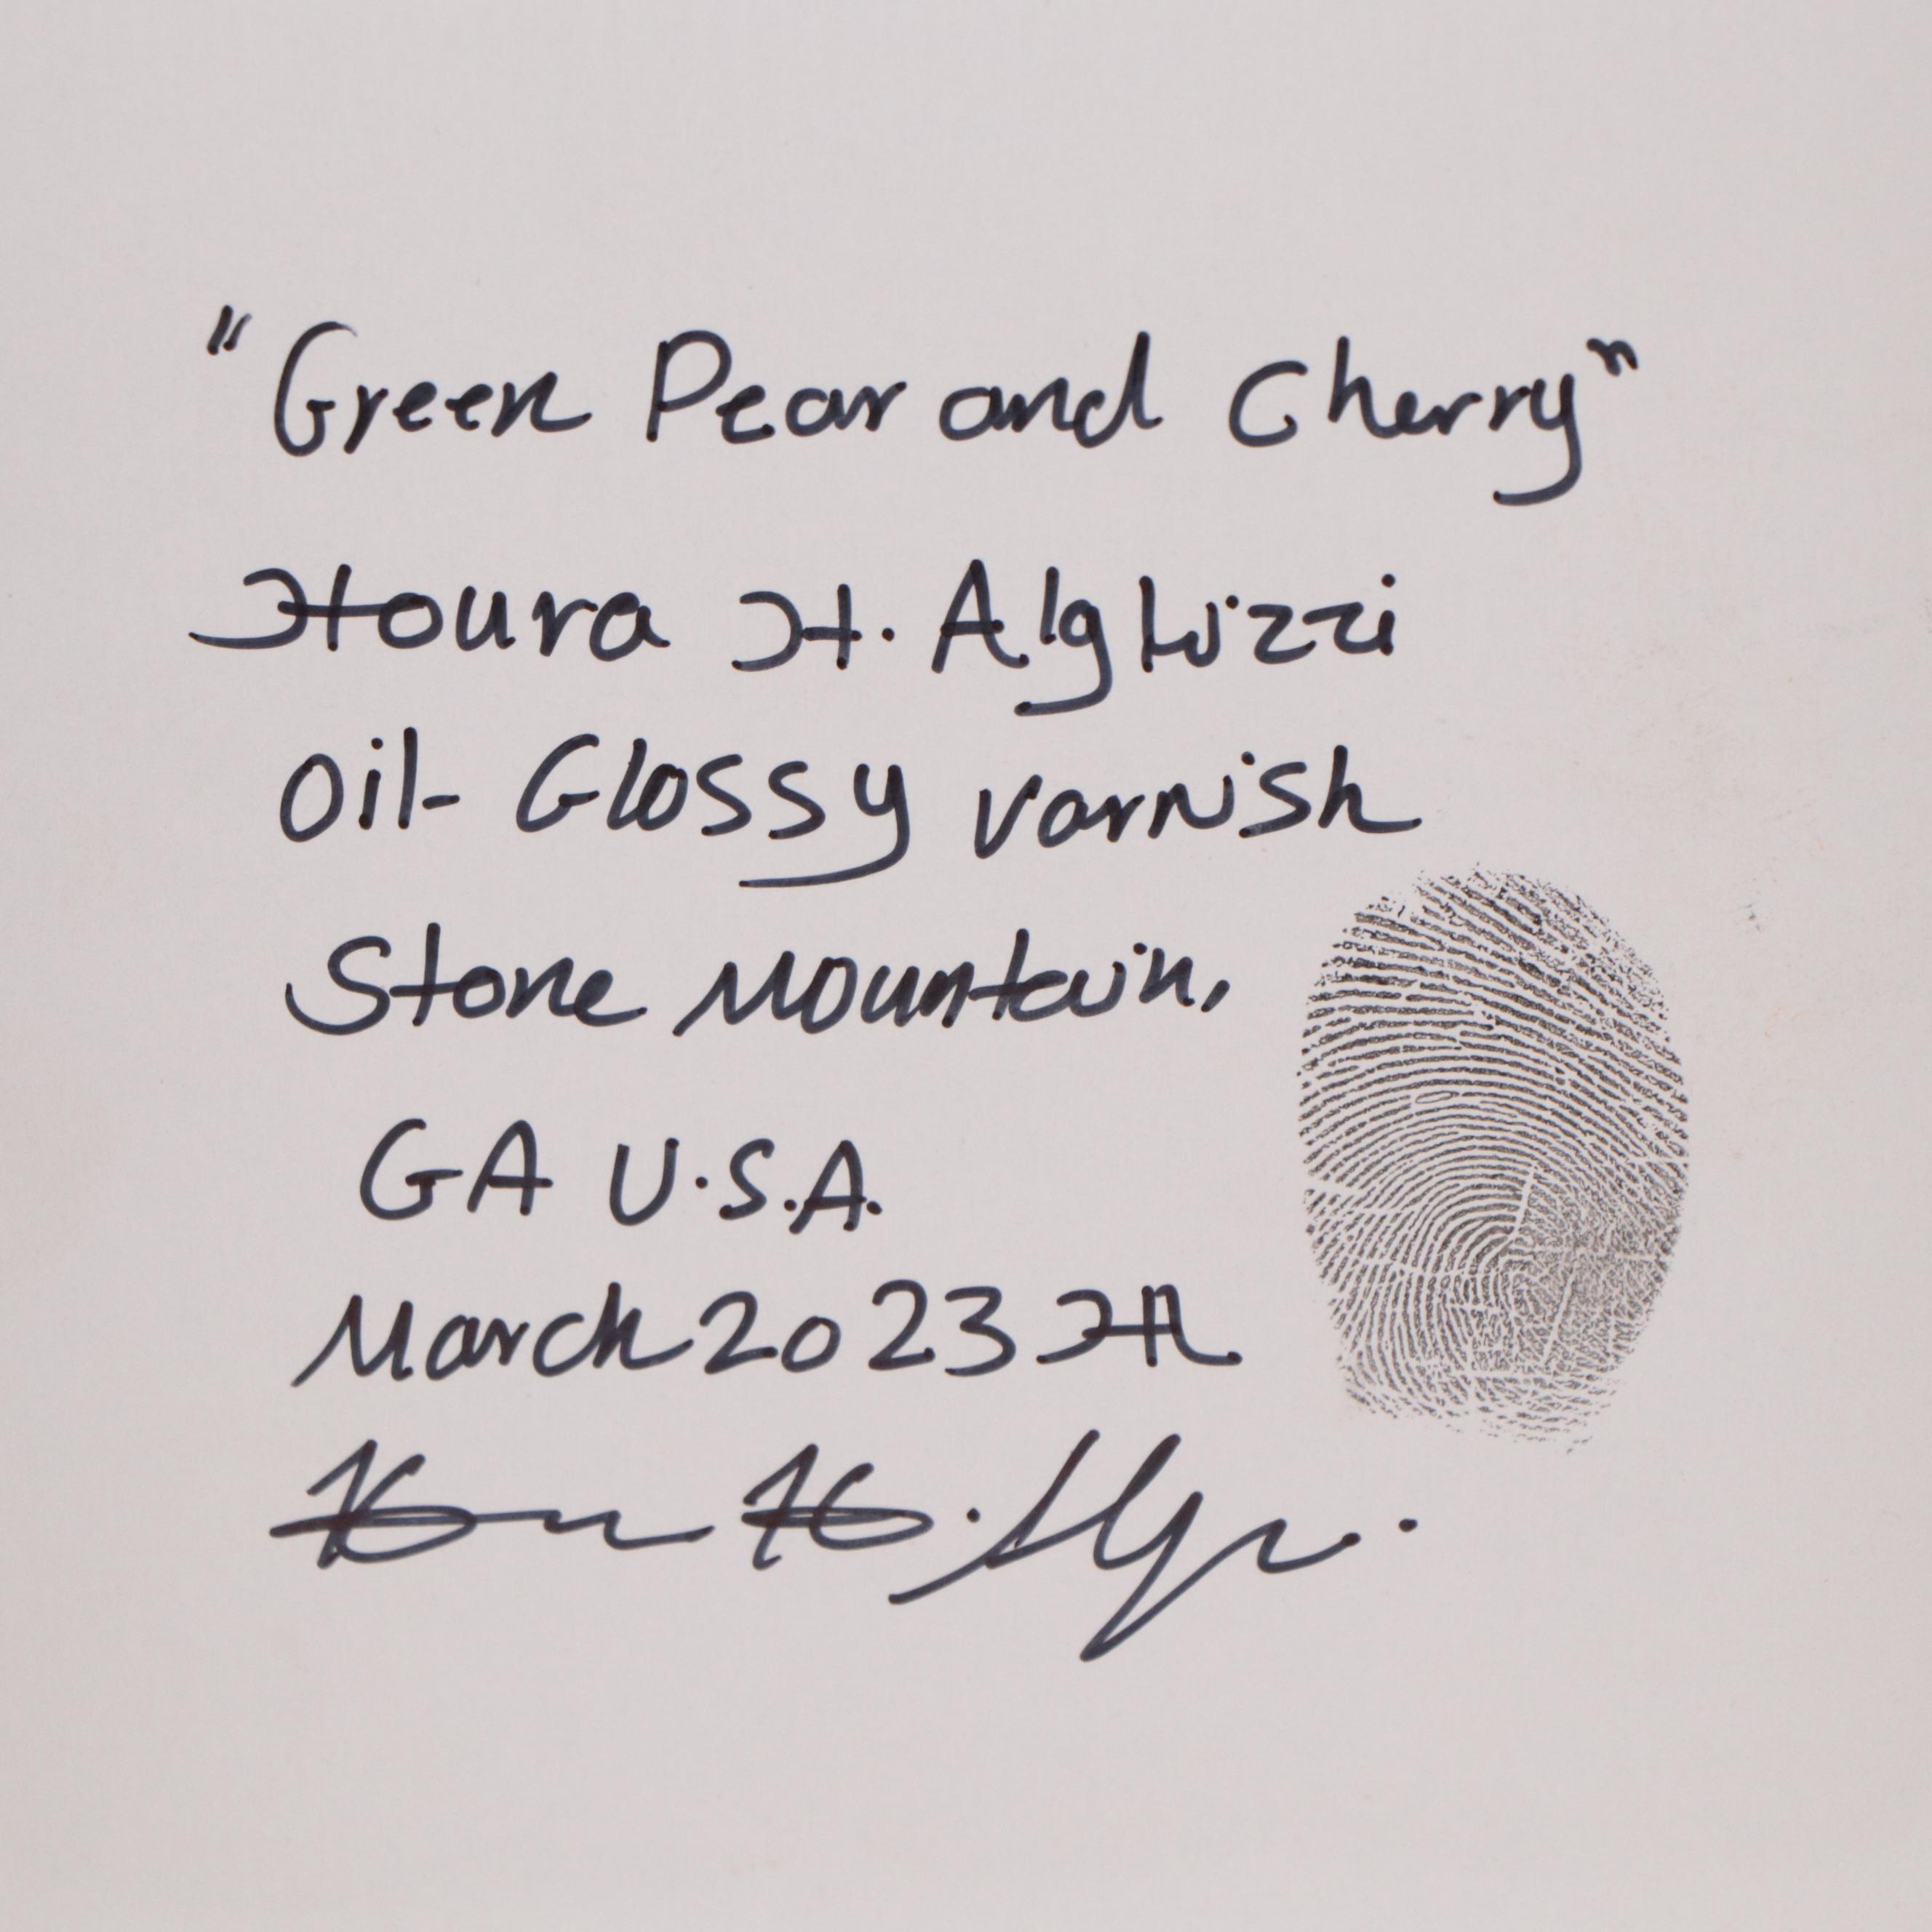 "Green Pear and Cherry"
Houra H. Alghizzi
Oil- Glossy varnish
Stone Mountain,
GA U.S.A.
March 2023 HA